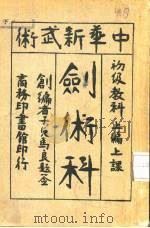 中華新武術
初級教科上編上課
劍術科
創編者子貞馬良題
商務印書館印行